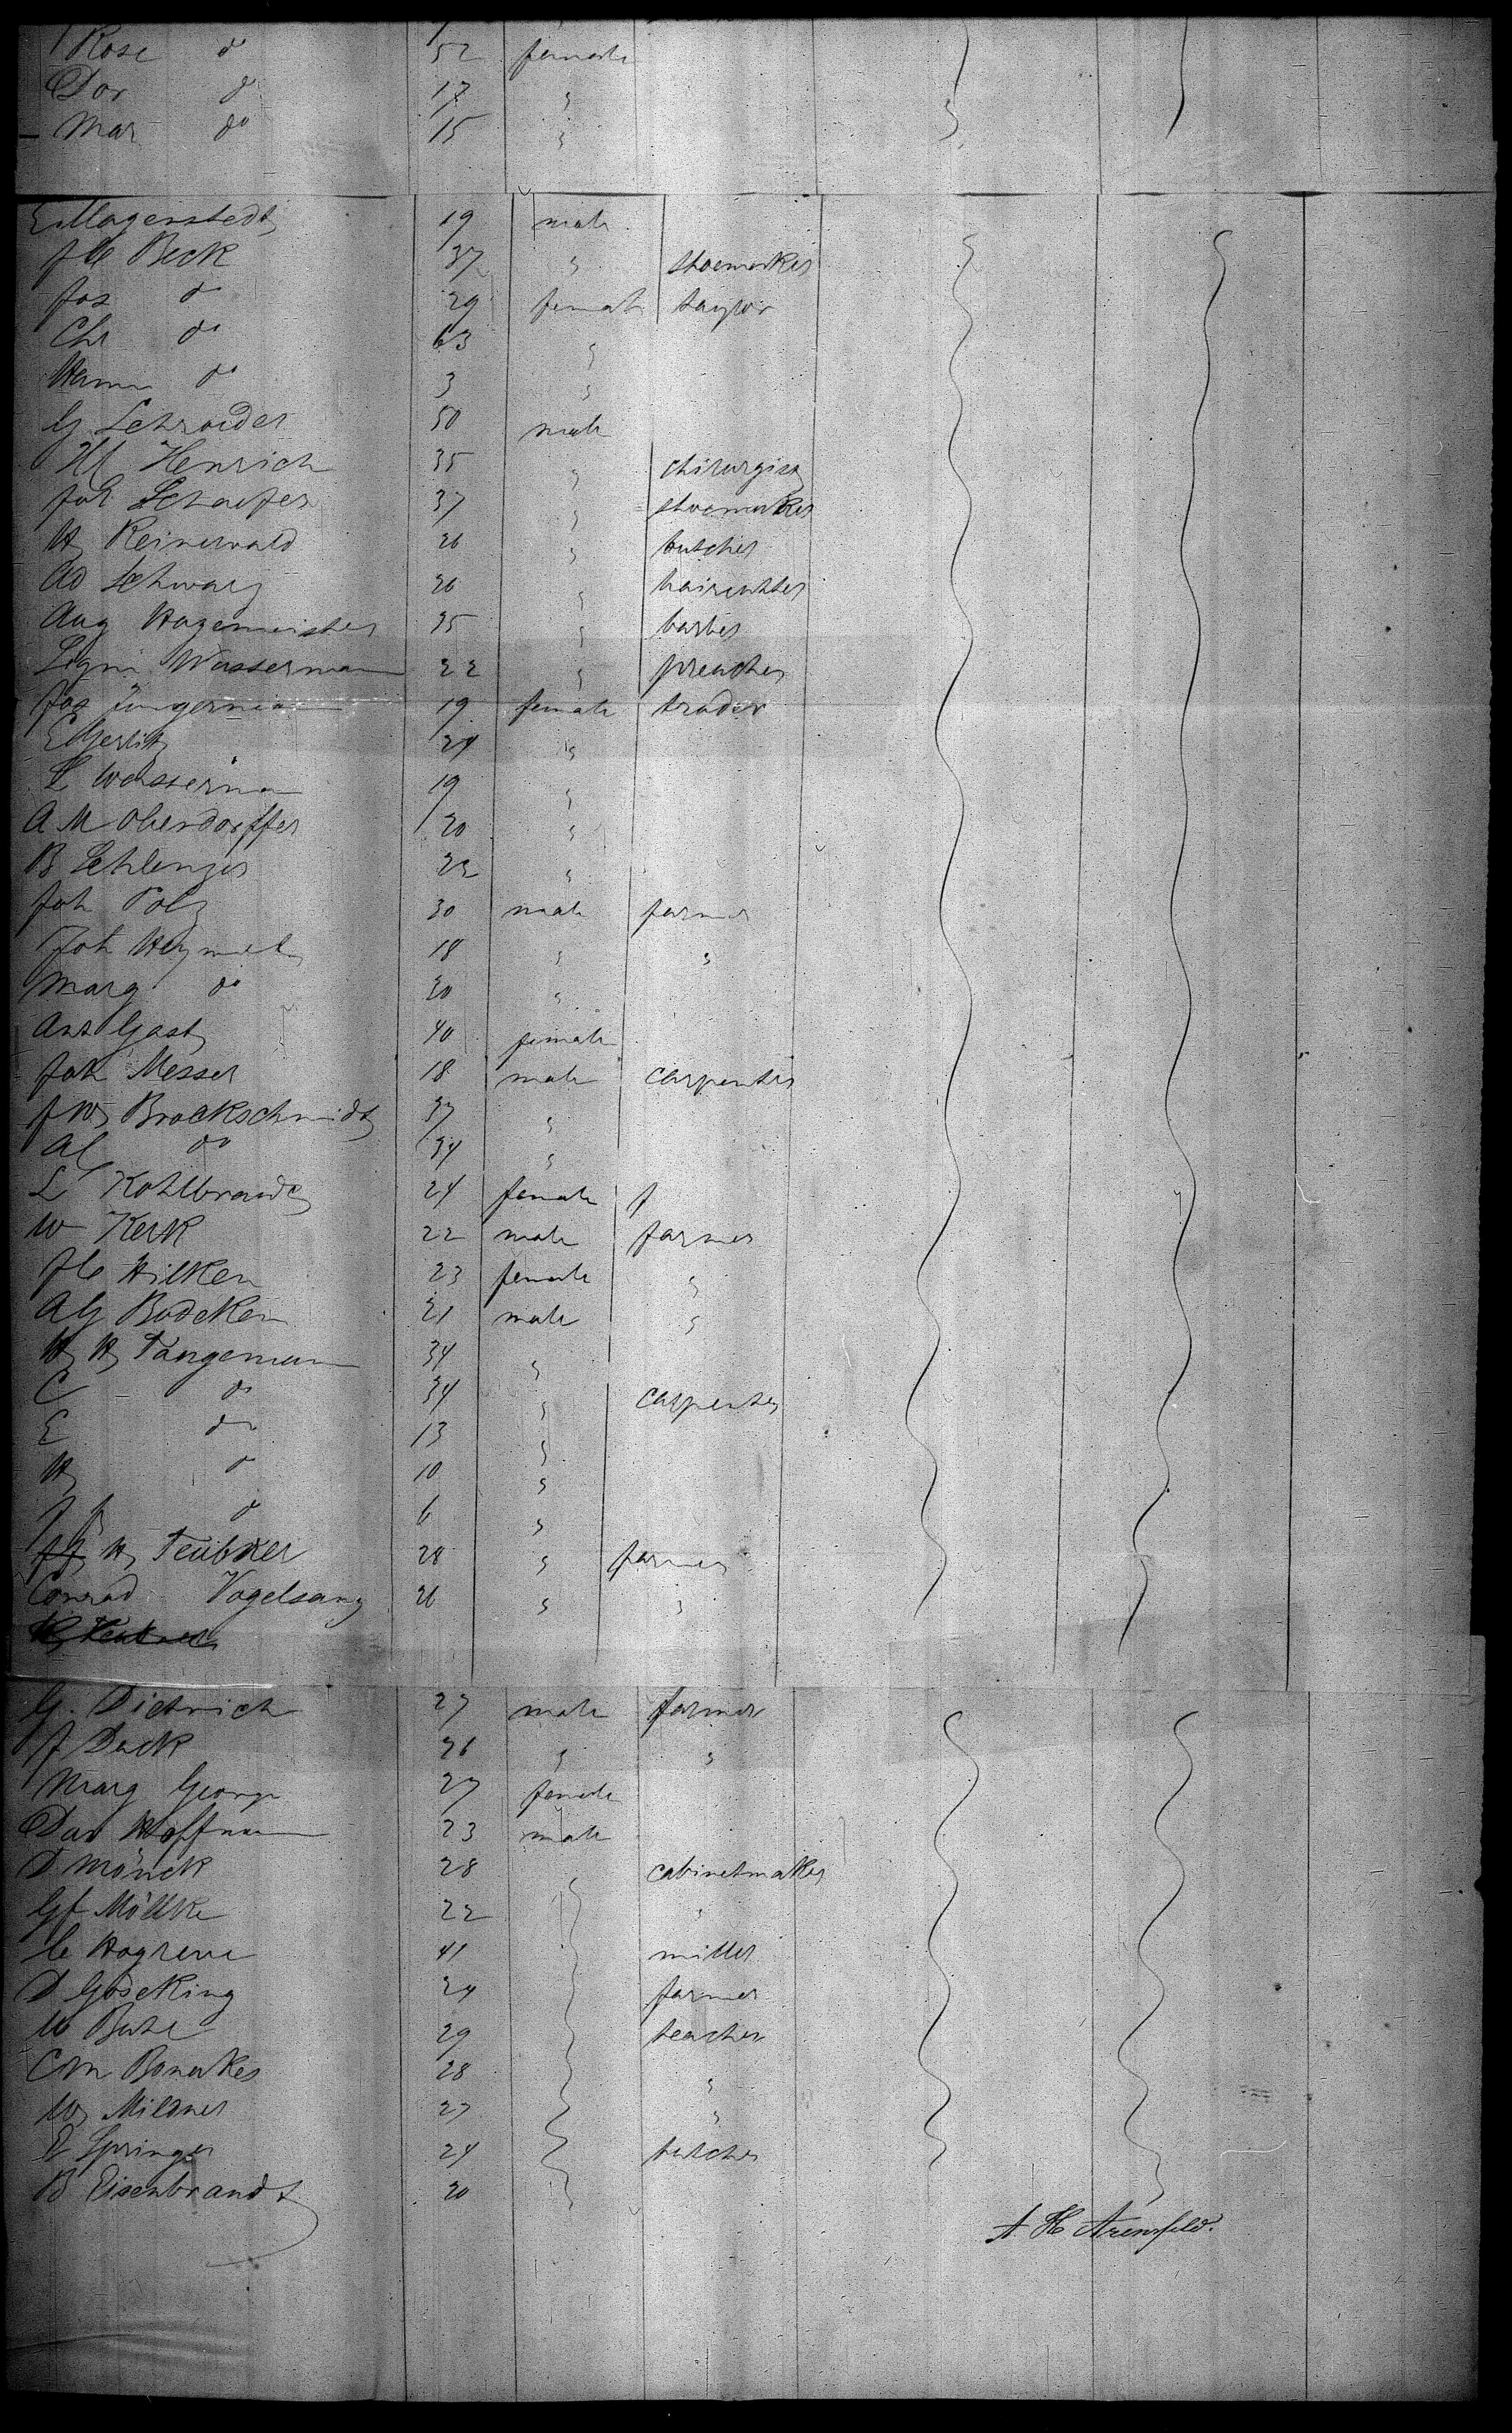 Rose do 52 female
Dor do 17 "
Mar do 15 "
E Magerstedt 19 male
J C Beck 37 " shoemaker
Jos do 29 female taylor
Chr do 63 "
do 3 "
G Schroeder 50 male
Henrich 35 " chirurgist
Joh Schaefer 37 " shoemaker
H Reinewald 26 " butcher
Ad Schwarz 26 " haircutter
Aug Hagemeister 35 " barber
Sigm Wasserman 22 " preacher
Jos Jungerman 19 female trader
E Gerlitz 24 "
L Wasserman 19 "
A M Oberdorffer 20 "
B Schlenger 22 "
Joh Polz 30 male farmer
Joh 18 " "
Marg do 20 "
Ant Gast 40 female
Joh Messer 18 male carpenter
J W Brockschmidt 37 "
Al do 34 "
L Kohlbrandt 24 female f
W Kerk 22 male farmer
J C Hilken 23 female "
A G Budeken 21 male "
H H Tangeman 34 "
C do 34 " carpenter
E do 13 "
H do 10 "
J F do 6 "
H Teubner 28 " farmer
Conrad Vogelsang 26 " "
G. Dietrich 27 male farmer
J Duck 26 " "
Marg George 27 female
Dav Hoffman 23 male
D Mönck 28 cabinetmaker
Gf Möllke 22 "
C Hogreve 41 miller
D Godeking 24 farmer
W Buhe 29 teacher
C M Bonakes 28 "
W Mildner 27 "
E Springer 24 butcher
B Eisenbrandt 20
A H Arensfeld.